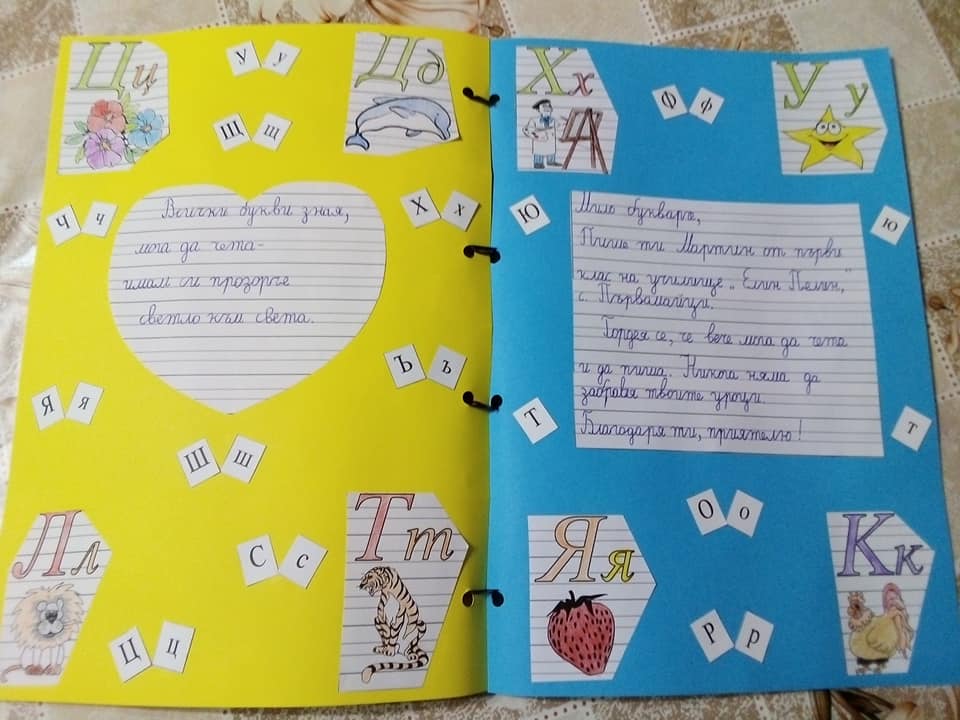 Цц
У у
Дд
Щ щ
Ч ч
Х х
Всички букви зная,
мога да чета-
имам си прозорче
светло към света.
Ъ ъ
Я я
Ш ш
Лл
С с
Тт
Ц ц
Хх
Ф ф
Уу
Ю ю
Мило букварче,
Пише ти Мартин от първи
клас на училище „Елин Пелин",
с. Първомайци.
Гордея се, че вече мога да чета
и да пиша. Никога няма да
забравя твоите уроци.
Благодаря ти, приятелю!
Т т
О о
Яя
Кк
Р р